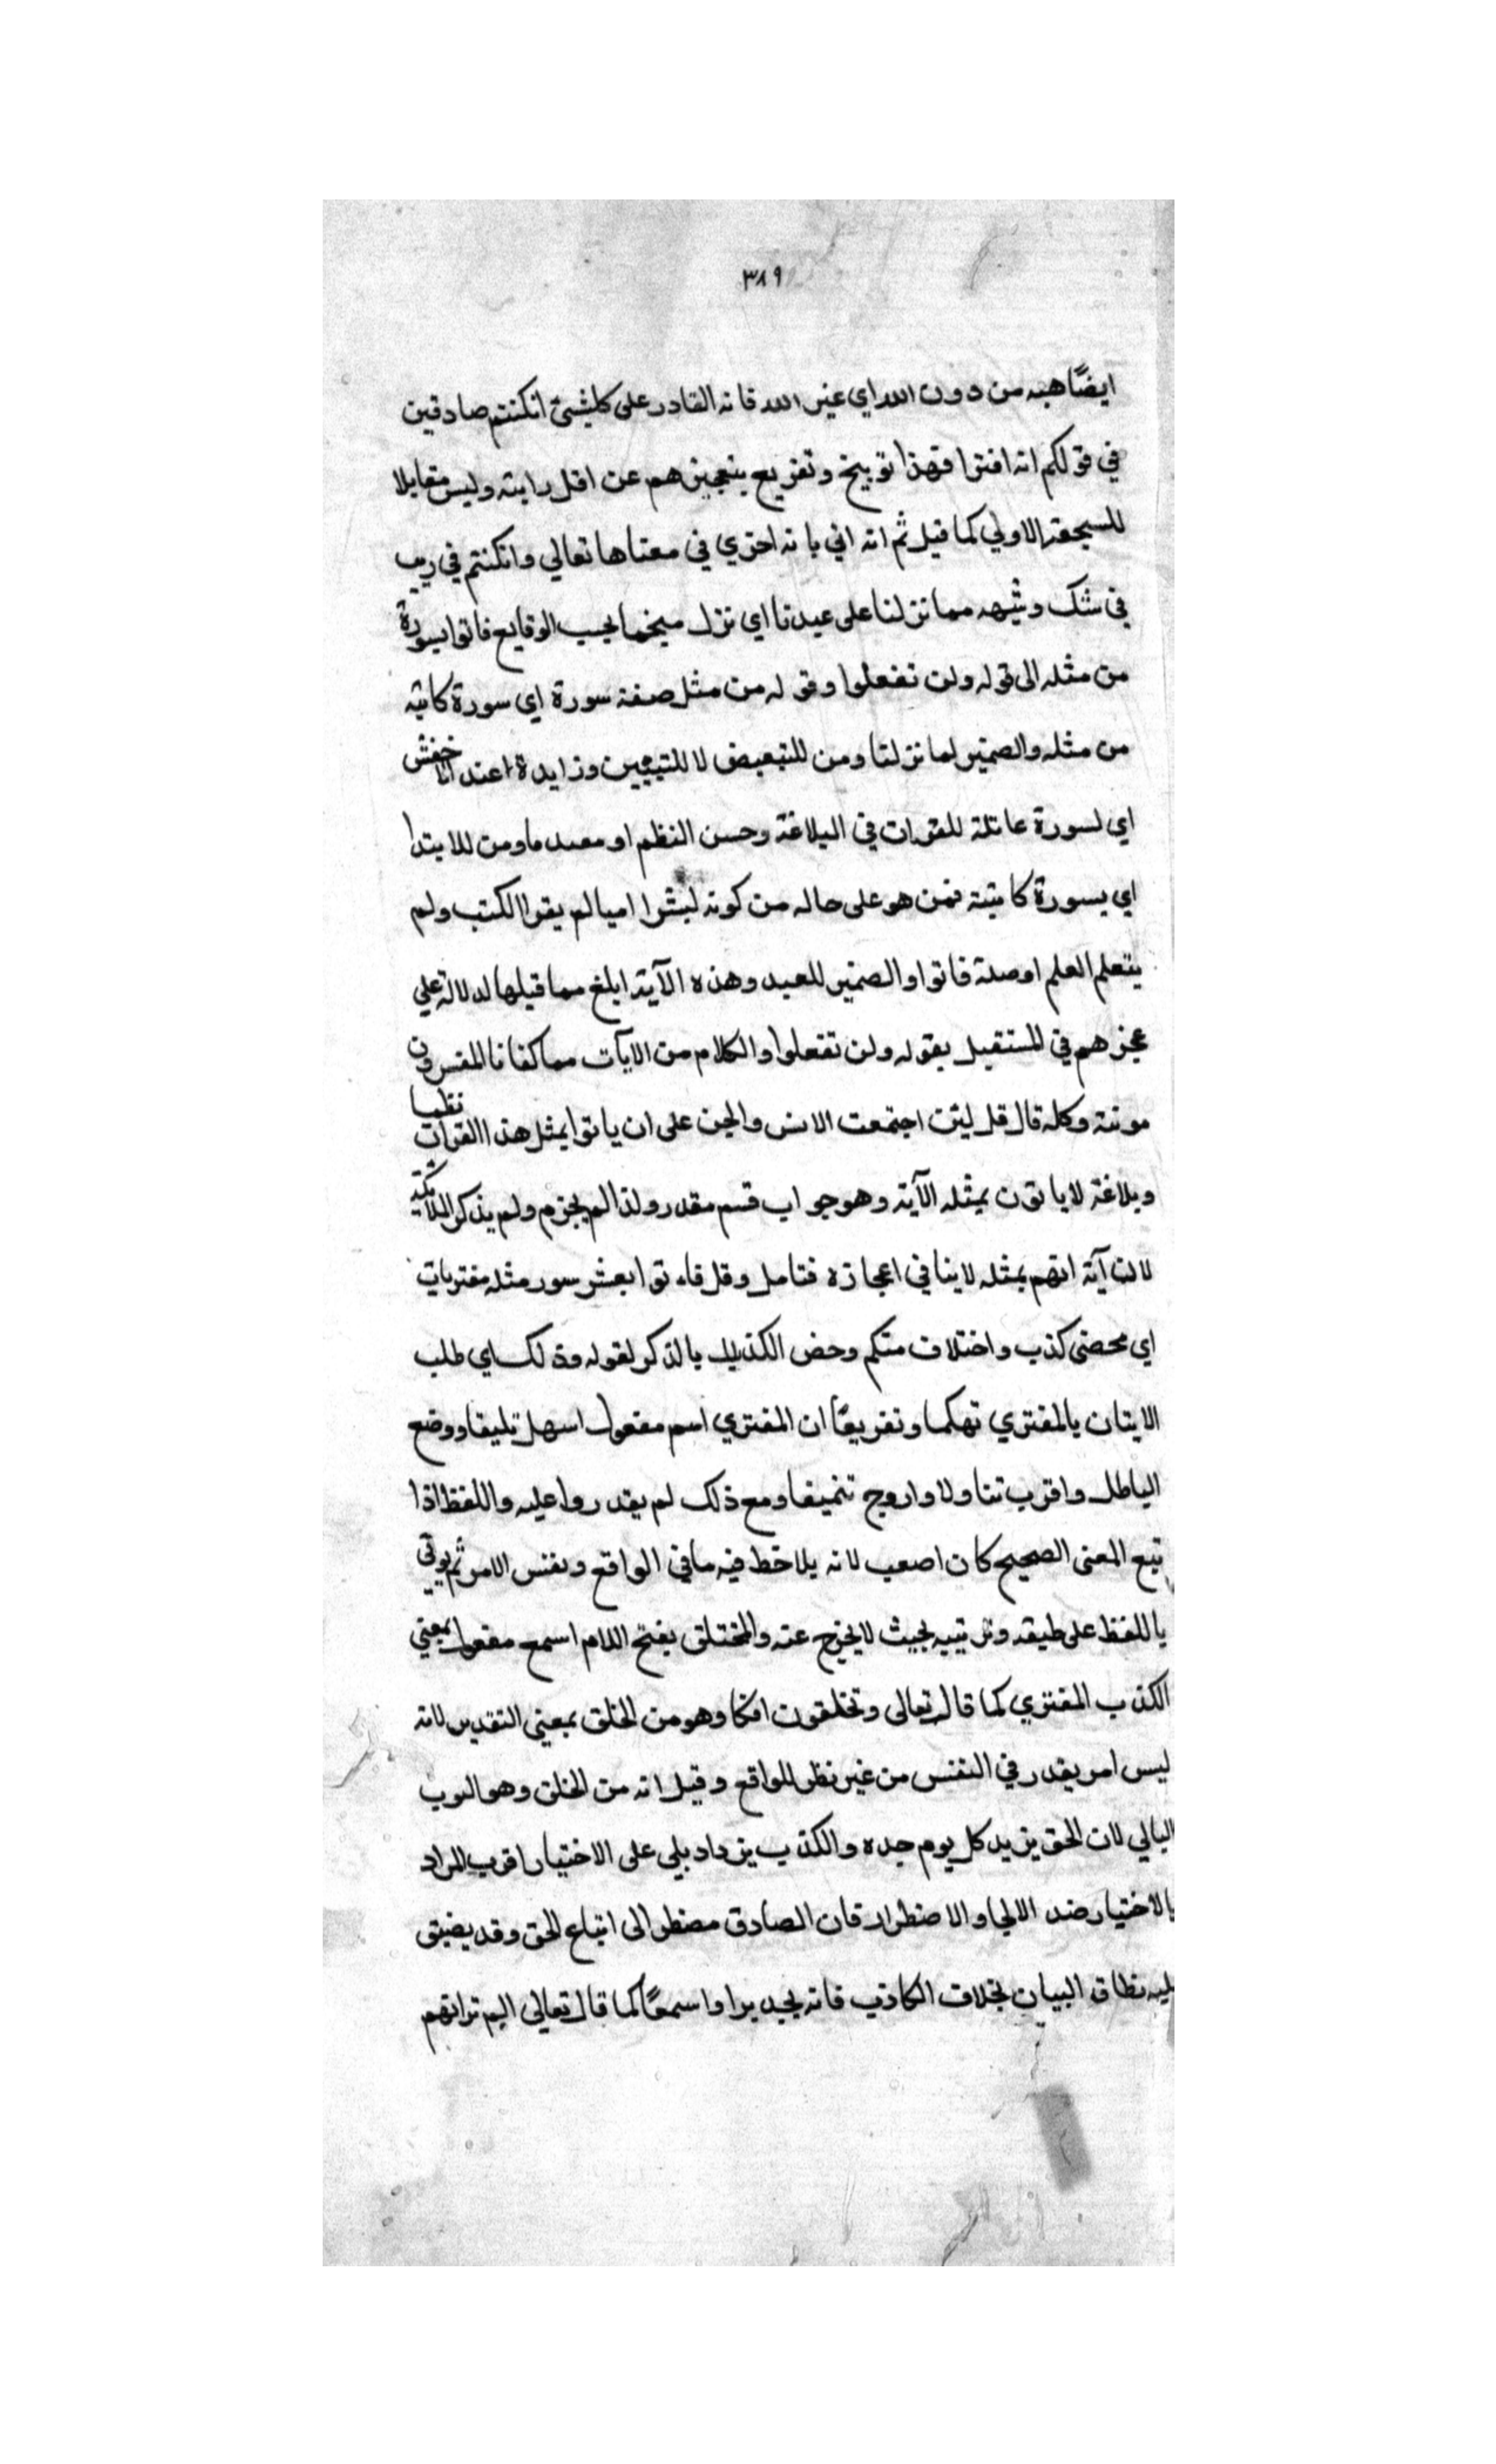 ٣٨٩
ايضًا هبه من دون الله اي غير الله فانه القادر على كلشئ انكنتم صادقين
في قولكم انه افترا فهذا توبيخ وتقريع بتعجيزهم عن اقل رايته وليس مقابلا
للسجعة الاولي كما قيل ثم انه اتي باية اخري في معناها تعالي وانكنتم في ريب
في شك وشبهه مما نزلنا على عبدنا اي نزل منجما بحسب الوقايع فاتوا بسورة
من مثله الى قوله ولن تفعلوا وقوله من مثل صفة سورة اي سورة كاتبه
من مثله والضمير لما نزلنا ومن للتبعيض لا للتبيين وزايدة عند الاخفش
اي لسورة عاتلة للقرات في البلاغة وحسن النظم او معبد ما ومن للابتدا
اي بسورة كاتبتة فمن هو على حاله من كونه لبشرا اميا لم يقرا الكتب ولم
يتعلم العلم او صلة فاتوا والضمير للعبد وهذه الآية ابلغ مما قبلها لدلالة علي
عجزهم في المستقبل بقوله ولن تفعلوا والكلام من الآيات مما كفانا المفسرون
مونته وكله قال قل لئن اجتمعت الانس والجن على ان ياتوا بمثل هذا القرات نظما
وبلاغة لا ياتون بمثله الآية وهو جواب قسم مقدر ولذا لم يجزم ولم يذكر الملائكة
لان آية اتهم بمثله لا ينافي اعجازه فتامل وقل فاء توا بعشر سور مثله مفتريات
اي محضى كذب واختلاق متكم وخص الكذب بالذكر لقوله وذلك اي طلب
الايتان بالمفتري تهكما وتقريعًا ان المفتري اسم مفعول اسهل تليفا ووضع
الباطل واقرب تناولا واروج تنميقا ومع ذلك لم يقدروا عليه واللفظ اذا
تبع المعنى الصحيح كان اصعب لانه يلاحظ فيه ما في الواقع ونفس الامر ثم يوتي
باللفظ على طبقه وترتيبه بحيث لا يخرج عنه والمختلق بفتح اللام اسم مفعول بمعني
الكذب المفتري كما قال تعالى وتخلقون افكا وهو من الخلق بمعني التقدير لانه
ليس امر يقدر في النفس من غير نظر للواقع وقيل انه من الخلق وهو الثوب
البالي لان الحق يزيد كل يوم جده والكذب يزداد بلي على الاختيار اقرب المراد
بالاختيار ضد الالجا والاضطرار فان الصادق مضطر الى اتباع الحق وقد يضيق
ليه نطاق البيان بخلاف الكاذب فانه يجد برا واسعًا كما قال تعالي الم تر انهم